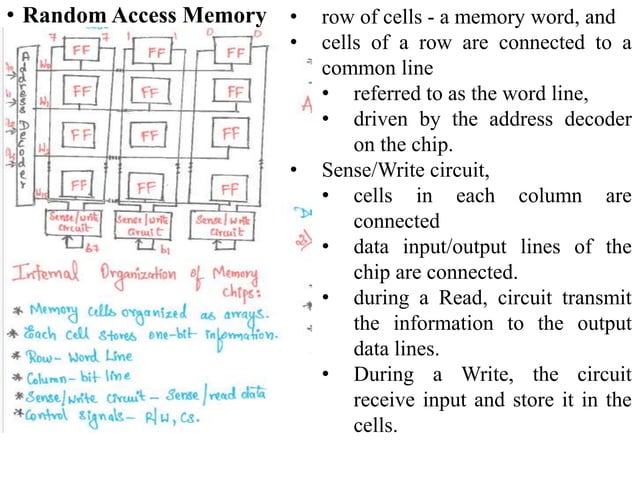 • Random Access Memory
7 7 1 1 0 0
Address Decoder
FF FF FF
W0
FF FF FF
W1
FF FF FF
W2
FF FF FF
Sense/write circuit
Sense/write circuit
Sense/write circuit
b7 b1
Internal Organization of Memory
chips:
* Memory cells organized as arrays.
* Each cell stores one-bit information.
* Row- Word Line
* Column- bit line
* Sense/write circuit - Sense/read data
* Control signals- R/W, CS.
• row of cells - a memory word, and
• cells of a row are connected to a
common line
• referred to as the word line,
• driven by the address decoder
on the chip.
• Sense/Write circuit,
• cells in each column are
connected
• data input/output lines of the
chip are connected.
• during a Read, circuit transmit
the information to the output
data lines.
• During a Write, the circuit
receive input and store it in the
cells.